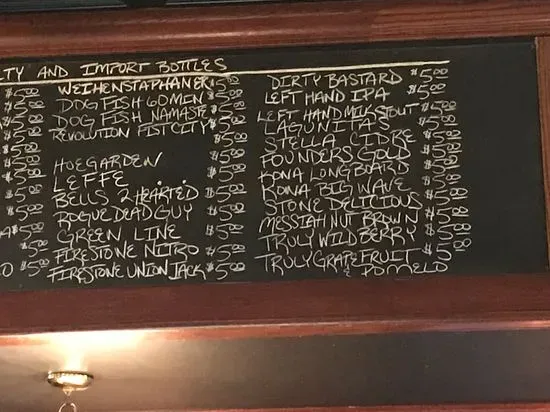 LTY AND IMPORT BOTTLES
$5.00 WEIHENSTAPHANER $5.00 DIRTY BASTARD $5.00
$5.00 DOG FISH 60 MIN $5.00 LEFT HAND IPA $5.00
$5.00 DOG FISH NAMASTE $5.00 LEFT HAND MILK STOUT $5.00
$5.00 REVOLUTION FIST CITY $5.00 LAGUNITAS $5.00
$5.00 STELLA CIDRE $5.00
$5.00 HOEGARDEN $5.00 FOUNDERS GOLD $5.00
$5.00 LEFFE $5.00 KONA LONGBOARD $5.00
$5.00 BELLS 2 HEARTED $5.00 KONA BIG WAVE $5.00
$5.00 ROGUE DEAD GUY $5.00 STONE DELICIOUS $5.00
$5.00 GREEN LINE $5.00 MESSIAH NUT BROWN $5.00
$5.00 FIRESTONE NITRO $5.00 TRULY WILD BERRY $5.00
$5.00 FIRESTONE UNION JACK $5.00 TRULY GRAPEFRUIT $5.00
& POMELO